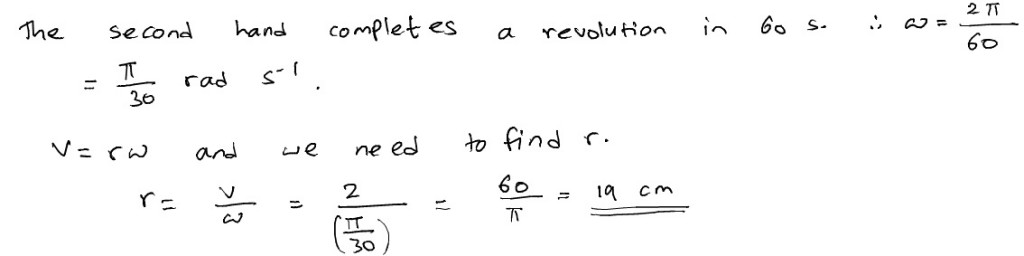 The second hand completes a revolution in 60 s. ∴ ω = 2π/60
= π/30 rad s⁻¹.
V = rω and we need to find r.
r = v/ω = 2/(π/30) = 60/π = 19 cm